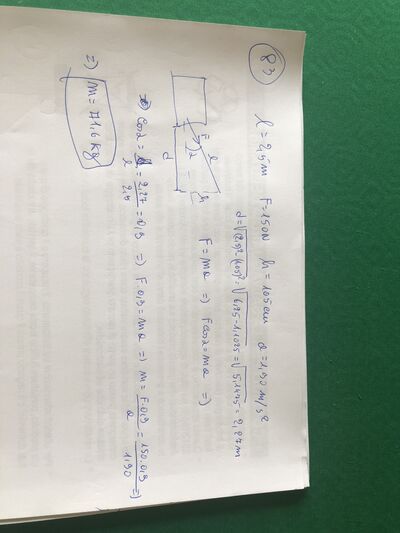 83
l = 2,5m F = 150N h = 105cm a = 1,90 m/s²
d = √(2,5)² - (1,05)² = √6,25 - 1,1025 = √5,1475 = 2,27m
F l
α h
d
F = ma ⇒ F cosα = ma ⇒
⇒ cosα = d/l = 2,27/2,5 = 0,9 ⇒ F · 0,9 = ma ⇒ m = F · 0,9/a = 150 · 0,9/1,90 ⇒
⇒ m = 71,6 kg